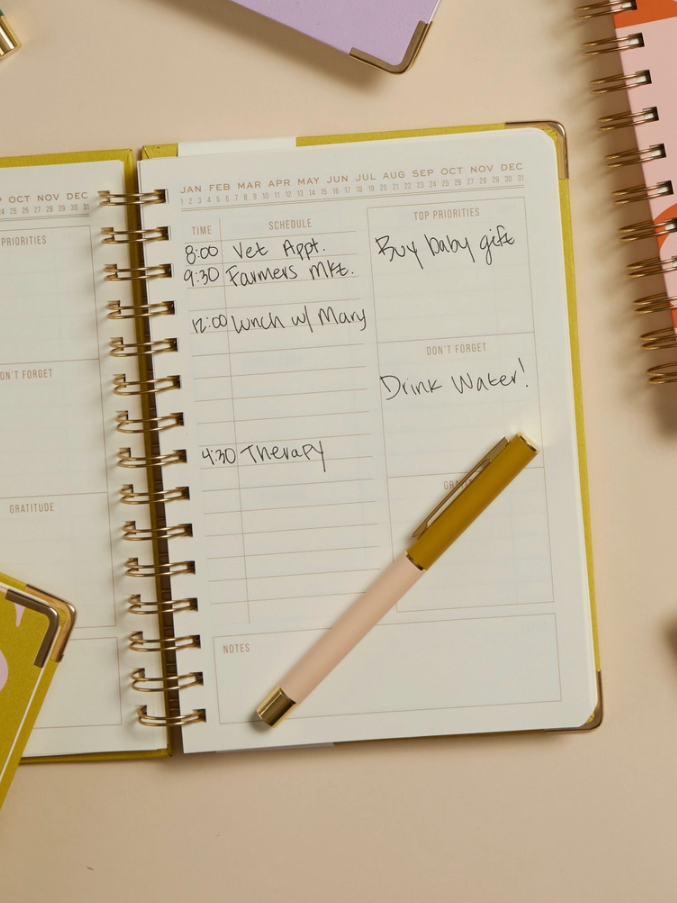 OCT NOV DEC
PRIORITIES
GRATITUDE
JAN FEB MAR APR MAY JUN JUL AUG SEP OCT NOV DEC
1 2 3 4 5 6 7 8 9 10 11 12 13 14 15 16 17 18 19 20 21 22 23 24 25 26 27 28 29 30 31
TIME SCHEDULE
8:00 Vet Appt.
9:30 Farmers Mkt.
12:00 Lunch w/ Mary
4:30 Therapy
TOP PRIORITIES
Buy baby gift
DON'T FORGET
Drink Water!
NOTES